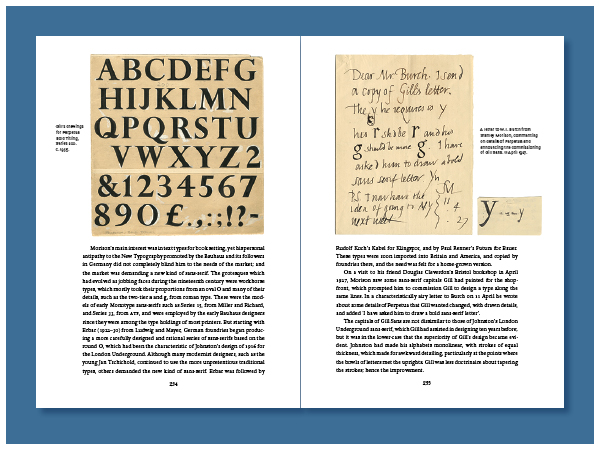 ABCDEFG
HIJKLMN
QPQRSTU
VWXYZ2
&1234567
890£.,:;!?-
Gill's drawings
for Perpetua
Series
Dear Mr. Burch. I send
a copy of Gill's letter.
the y he requires is y
his r shd be r and his
g should be more g. I have
asked him to draw a bold
sans serif letter.
P.S. I now have the
idea of going to NY
next week
SM
11
4
27
A letter to W. I. Burch from
Stanley Morison, commenting
on details of Perpetua and
announcing the commissioning
of Gill Sans, 11 April 1927.
y
Morison's main interest was in text types for book setting, yet his personal
antipathy to the New Typography promoted by the Bauhaus and its followers
in Germany did not completely blind him to the needs of the market; and
the market was demanding a new kind of sans-serif. The grotesques which
had evolved as jobbing faces during the nineteenth century were workhorse
types, which mostly took their proportions from an oval O and many of their
details, such as the two-tier a and g, from roman type. These were the mod-
els of early Monotype sans-serifs such as Series 15, from Miller and Richard,
and Series 33, from ATF, and were employed by the early Bauhaus designers
since they were among the type holdings of most printers. But starting with
Erbar (1922–30) from Ludwig and Mayer, German foundries began produc-
ing a more carefully designed and rational series of sans-serifs based on the
round O, which had been the characteristic of Johnston's design of 1916 for
the London Underground. Although many modernist designers, such as the
young Jan Tschichold, continued to use the more unpretentious traditional
types, others demanded the new kind of sans-serif. Erbar was followed by
254
Rudolf Koch's Kabel for Klingspor, and by Paul Renner's Futura for Bauer.
These types were soon imported into Britain and America, and copied by
foundries there, and the need was felt for a home-grown version.
On a visit to his friend Douglas Cleverdon's Bristol bookshop in April
1927, Morison saw some sans-serif capitals Gill had painted for the shop-
front, which prompted him to commission Gill to design a type along the
same lines. In a characteristically airy letter to Burch on 11 April he wrote
about some details of Perpetua that Gill wanted changed, with drawn details,
and added 'I have asked him to draw a bold sans serif letter'.
The capitals of Gill Sans are not dissimilar to those of Johnston's London
Underground sans-serif, which Gill had assisted in designing ten years before,
but it was in the lower case that the superiority of Gill's design became evi-
dent. Johnston had made his alphabets monolinear, with strokes of equal
thickness, which made for awkward detailing, particularly at the points where
the bowls of letters met the uprights. Gill was less doctrinaire about tapering
the strokes; hence the improvement.
255